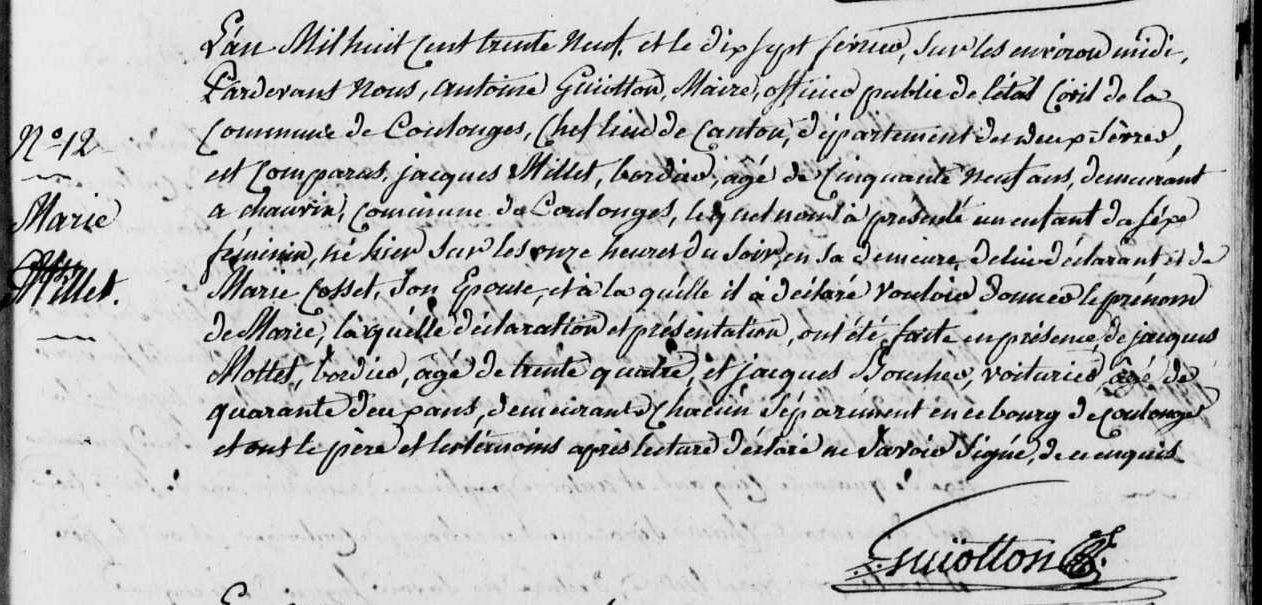 L'an Mil huit cent trente neuf, et le dix sept février, sur les environ midi,
Pardevant Nous, antoine Guiotton, Maire, officier public de l'état Civil de la
N.° 12
Commune de Coulonges, Chef lieu de Canton, département des deux-Sèvres,
est Comparus jacques Millet, bordier, âgé de Cinquante neuf ans, demeurant
Marie
a chauvin, Commune de Coulonges, lequel nous à présenté un enfant du séxe
féminin, né hier sur les onze heures du soir, en sa demeure, de lui déclarant et de
Millet.
Marie Cosset, son Epouse, et à la quelle il à déclaré vouloir donner le prénom
de Marie, laquelle déclaration et présentation, ont été faite en présence de jacques
Mottet, bordier, âgé de trente quatre, et jacques Boucher, voiturier âgé de
quarante deux ans, demeurant Chacun séparément en ce bourg de Coulonges
et ont le père et les témoins après lecture déclaré ne Savoir Signé, de ce enquis
Guiotton